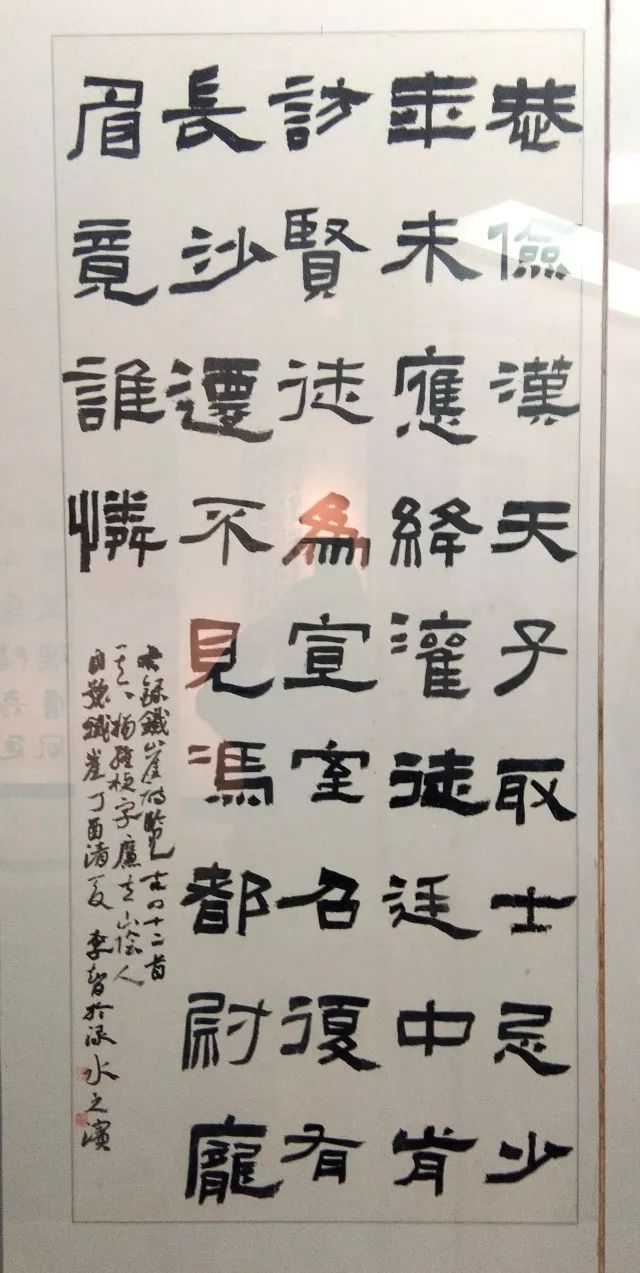 恭儉漢天子取士忌少
年未應絳灌徒廷中肯
訪賢徒為宣室召復有
長沙遷不見馮都尉龐
眉竟誰憐
錄鐵崖詩覽古四十二首
楊維楨字廉夫山陰人
自號鐵崖丁酉清夏李智於渌水之濱